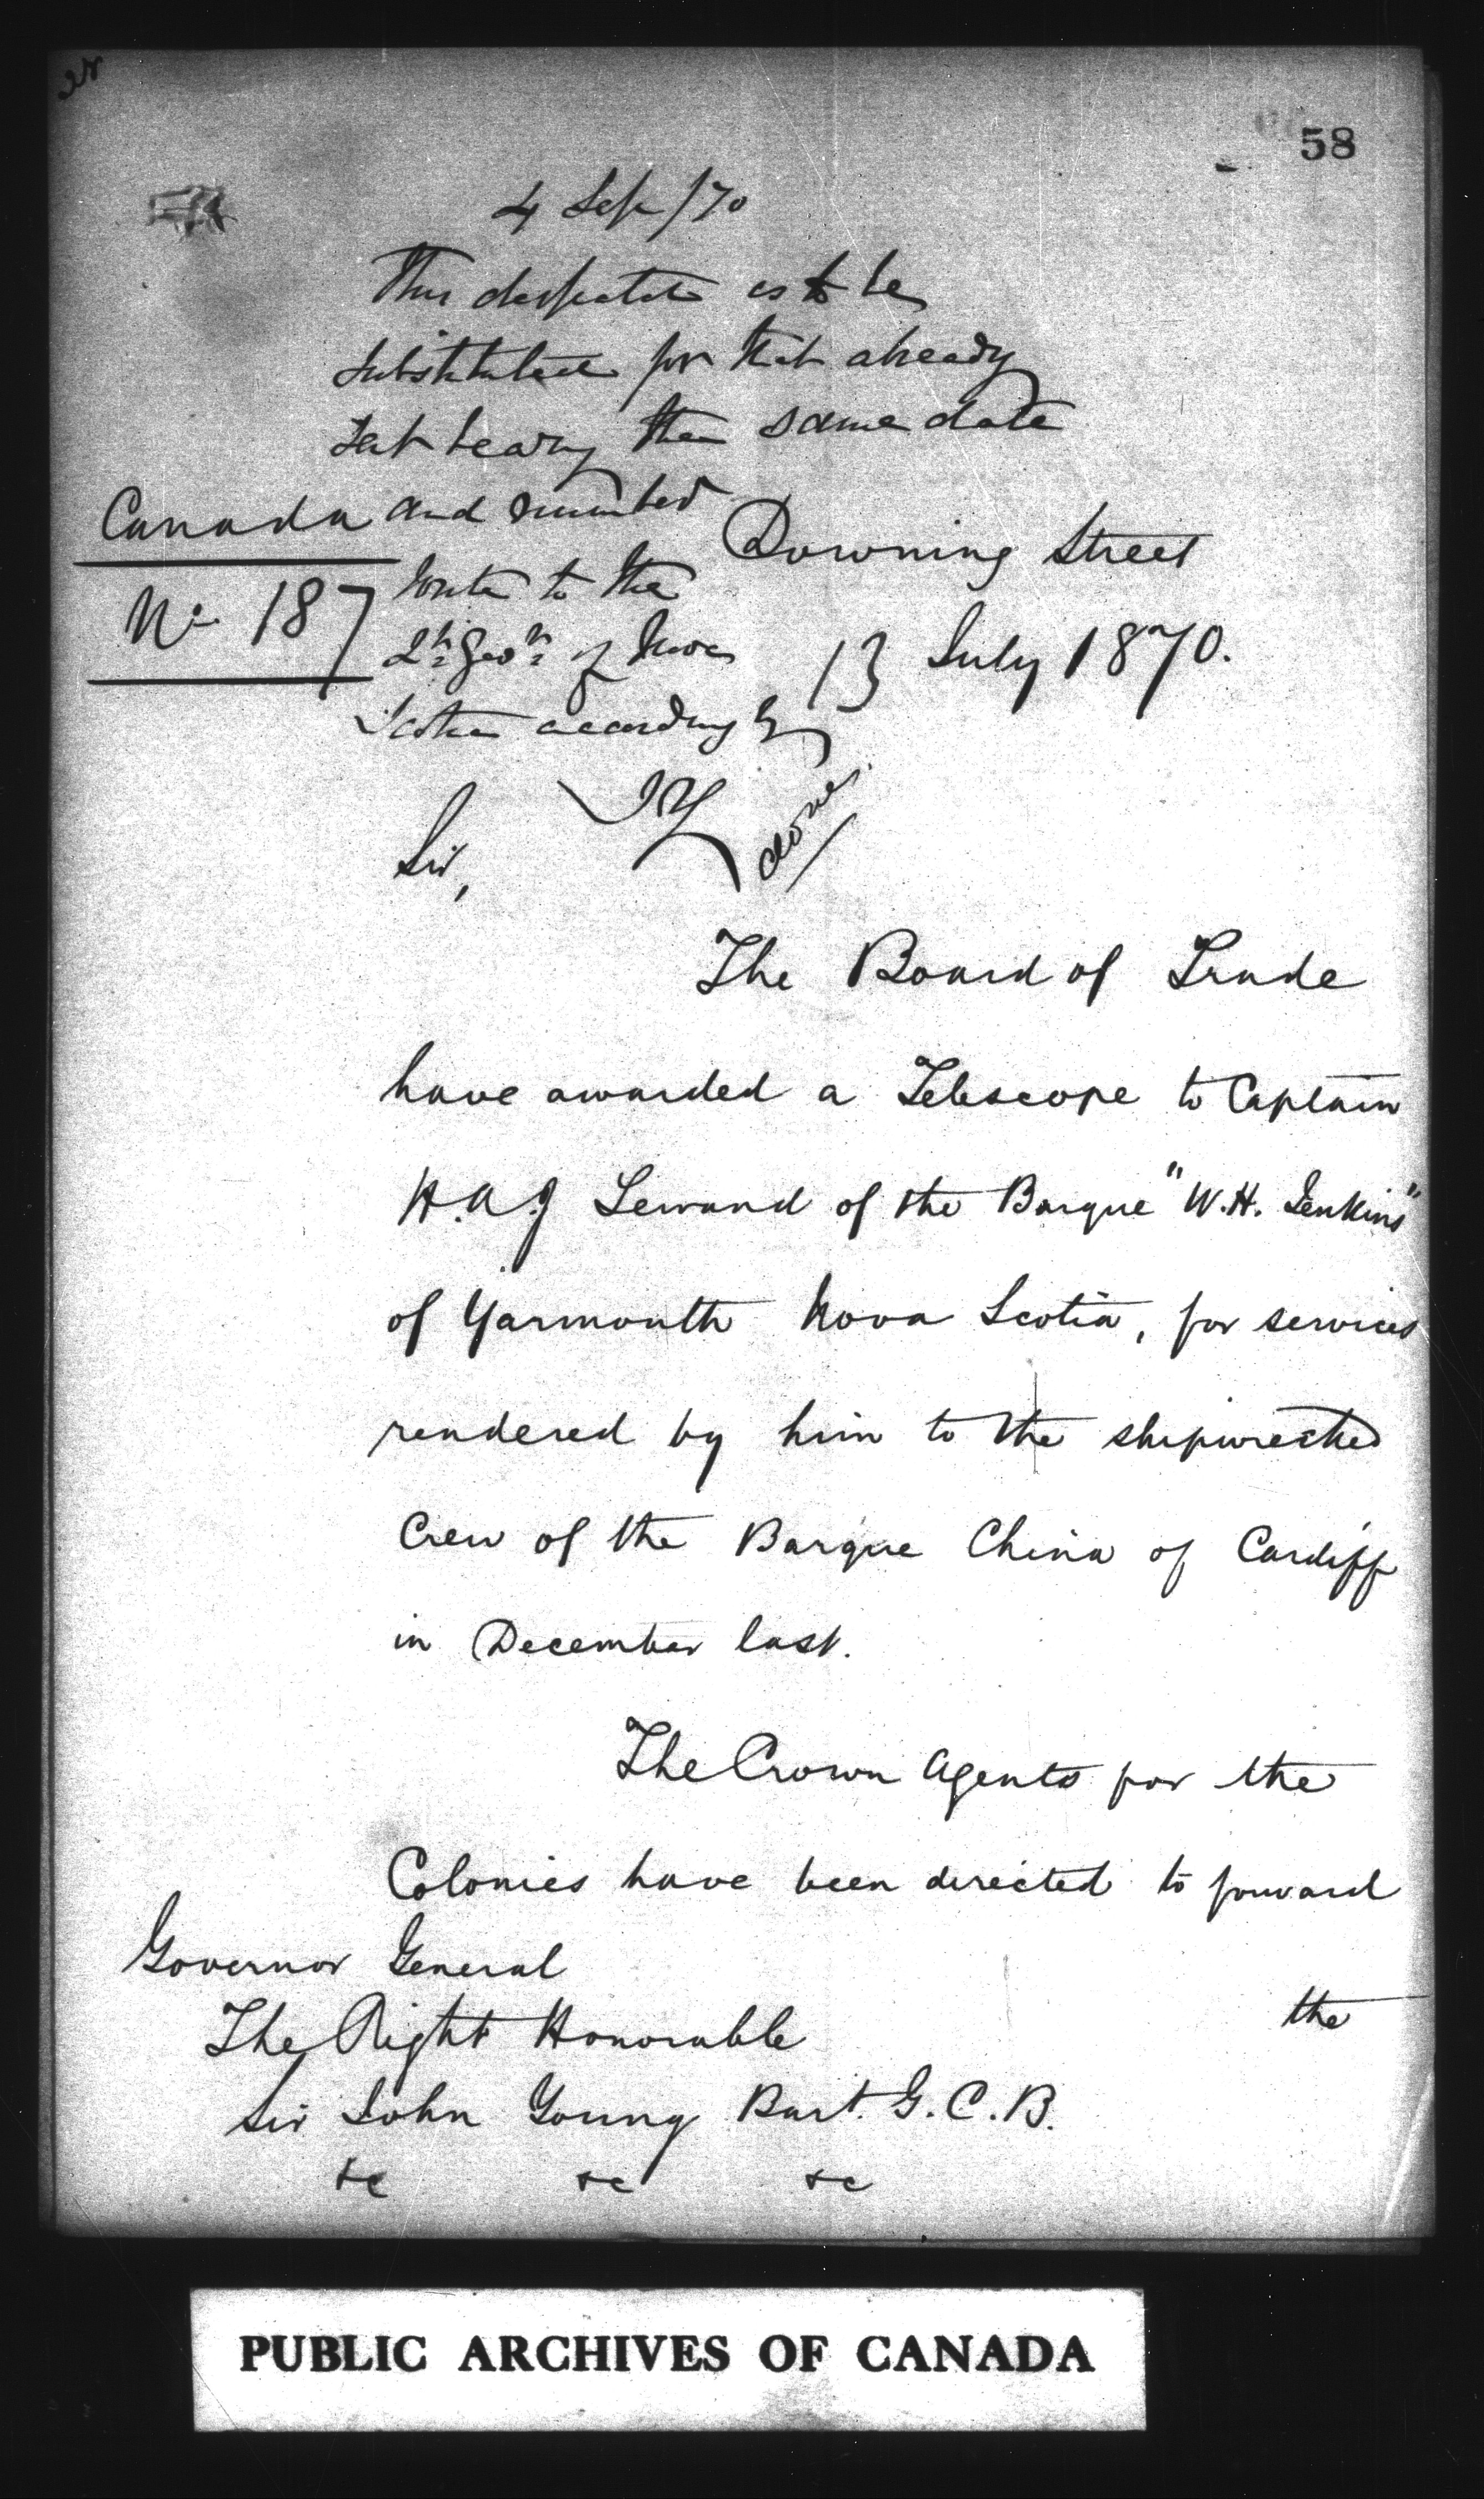 58
4 Sep /70
This despatch is to be
substituted for that already
sent bearing the same date
and number
Canada
Downing Street
No 187
Write to the
Lt. Govr. of Nova
13 July 1870.
Scotia accordingly
JY
done.
Sir,
The Board of Trade
have awarded a Telescope to Captain
H.A.J of the Barque "W.H. Jenkins"
of Yarmouth Nova Scotia, for services
rendered by him to the shipwrecked
Crew of the Barque China of Cardiff
in December last.
The Crown Agents for the
Colonies have been directed to forward
Governor General
The Right Honorable
the
Sir John Young Bart. G.C.B.
&c &c &c
PUBLIC ARCHIVES OF CANADA